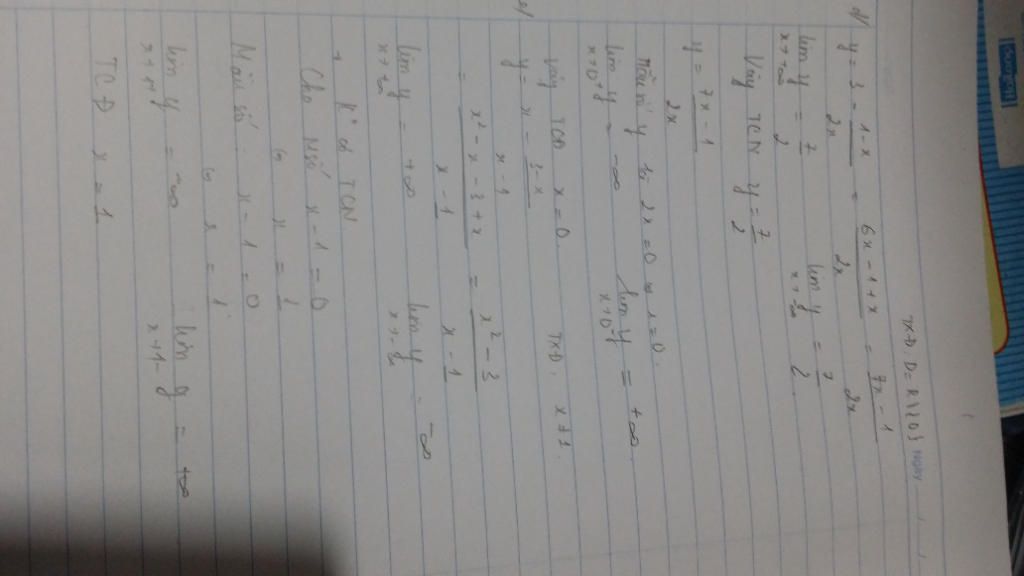 TXĐ: D = R\{0} Ngày
d/ y = 3 - \frac{1-x}{2x} = \frac{6x-1+x}{2x} = \frac{7x-1}{2x}
lim y = \frac{7}{2} lim y = \frac{7}{2}
x→+∞ x→-∞
Vậy TCN y = \frac{7}{2}
y = \frac{7x-1}{2x}
Mẫu số 2x = 0 ⇔ x = 0
lim y = -∞ lim y = +∞
x→0⁺ x→0⁻
Vậy TCĐ x = 0
e/ y = x - \frac{3-x}{x-1} TXĐ: x ≠ 1
= \frac{x²-x-3+x}{x-1} = \frac{x²-3}{x-1}
lim y = +∞ lim y = -∞
x→+∞ x→-∞
→ K° có TCN
Cho Msố x - 1 = 0
⇔ x = 1
Mẫu số: x - 1 = 0
⇔ x = 1
lim y = -∞ lim y = +∞
x→1⁺ x→1⁻
TCĐ x = 1